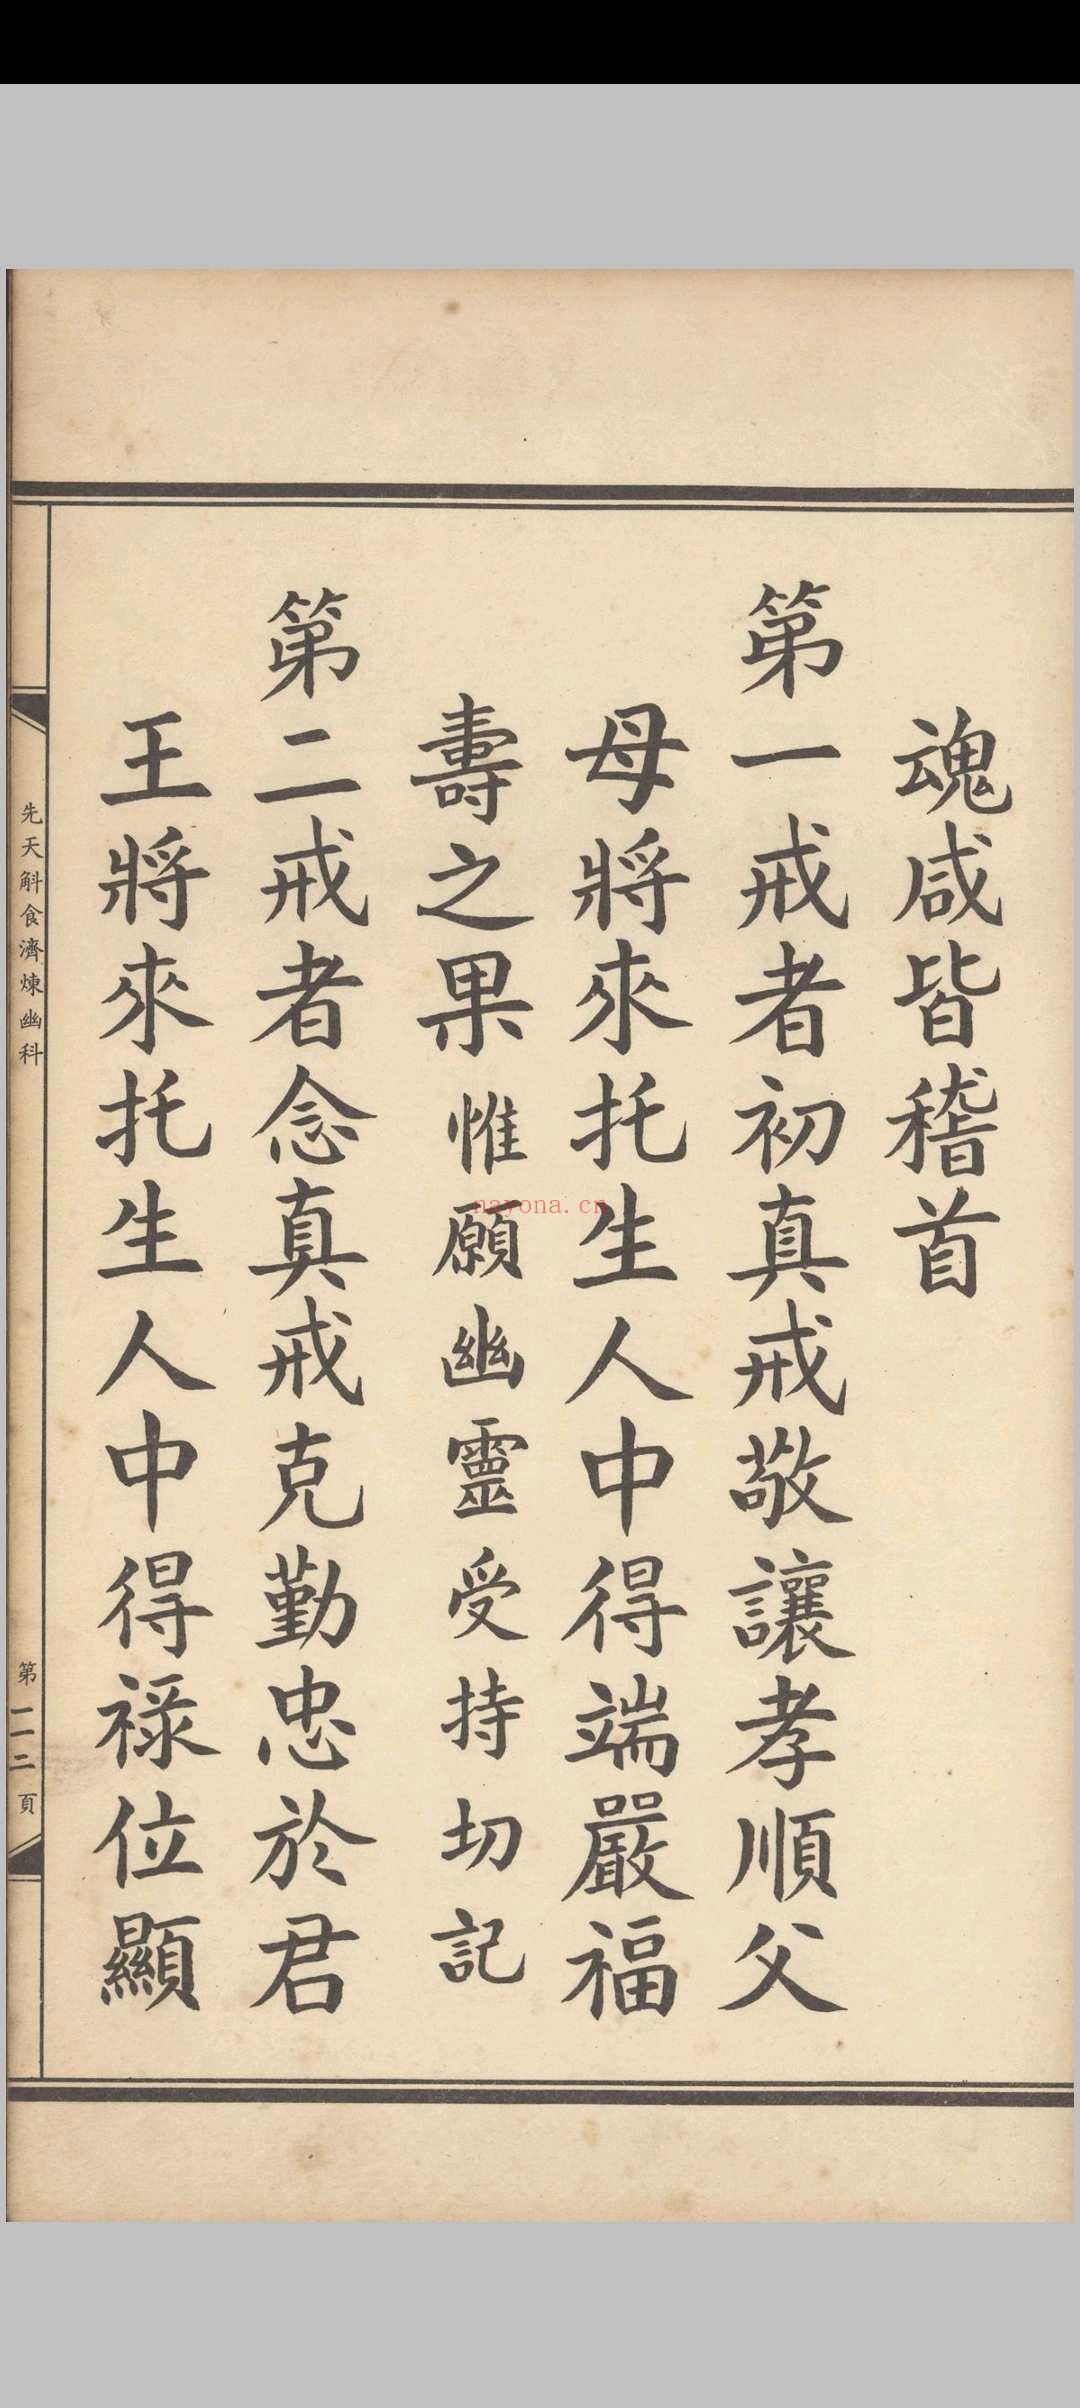 魂咸皆稽首
第一戒者初真戒敬讓孝順父
母將來托生人中得端嚴福
壽之果惟願幽靈受持切記
第二戒者念真戒克勤忠於君
王將來托生人中得祿位顯
先天斛食濟煉幽科
第一一二頁
nayona.cn